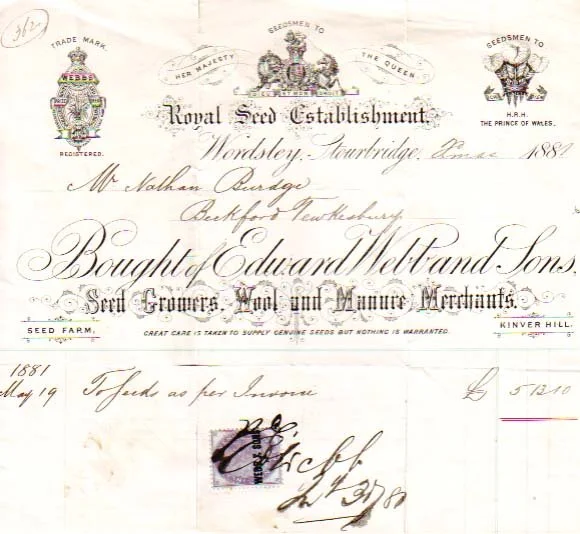 362
TRADE MARK.
WEBBS'
REGISTERED.
SEEDSMEN TO
HER MAJESTY
THE QUEEN
SEEDSMEN TO
H.R.H.
THE PRINCE OF WALES.
Royal Seed Establishment.
Wordsley, Stourbridge, Xmas 1881
Mr Nathan Burdge
Beckford Tewkesbury
Bought of Edward Webb and Sons.
Seed Growers, Wool and Manure Merchants.
SEED FARM,
GREAT CARE IS TAKEN TO SUPPLY GENUINE SEEDS BUT NOTHING IS WARRANTED.
KINVER HILL.
1881
May 19 To Seeds as per Invoice £ 5 12 10
WEBB & SONS